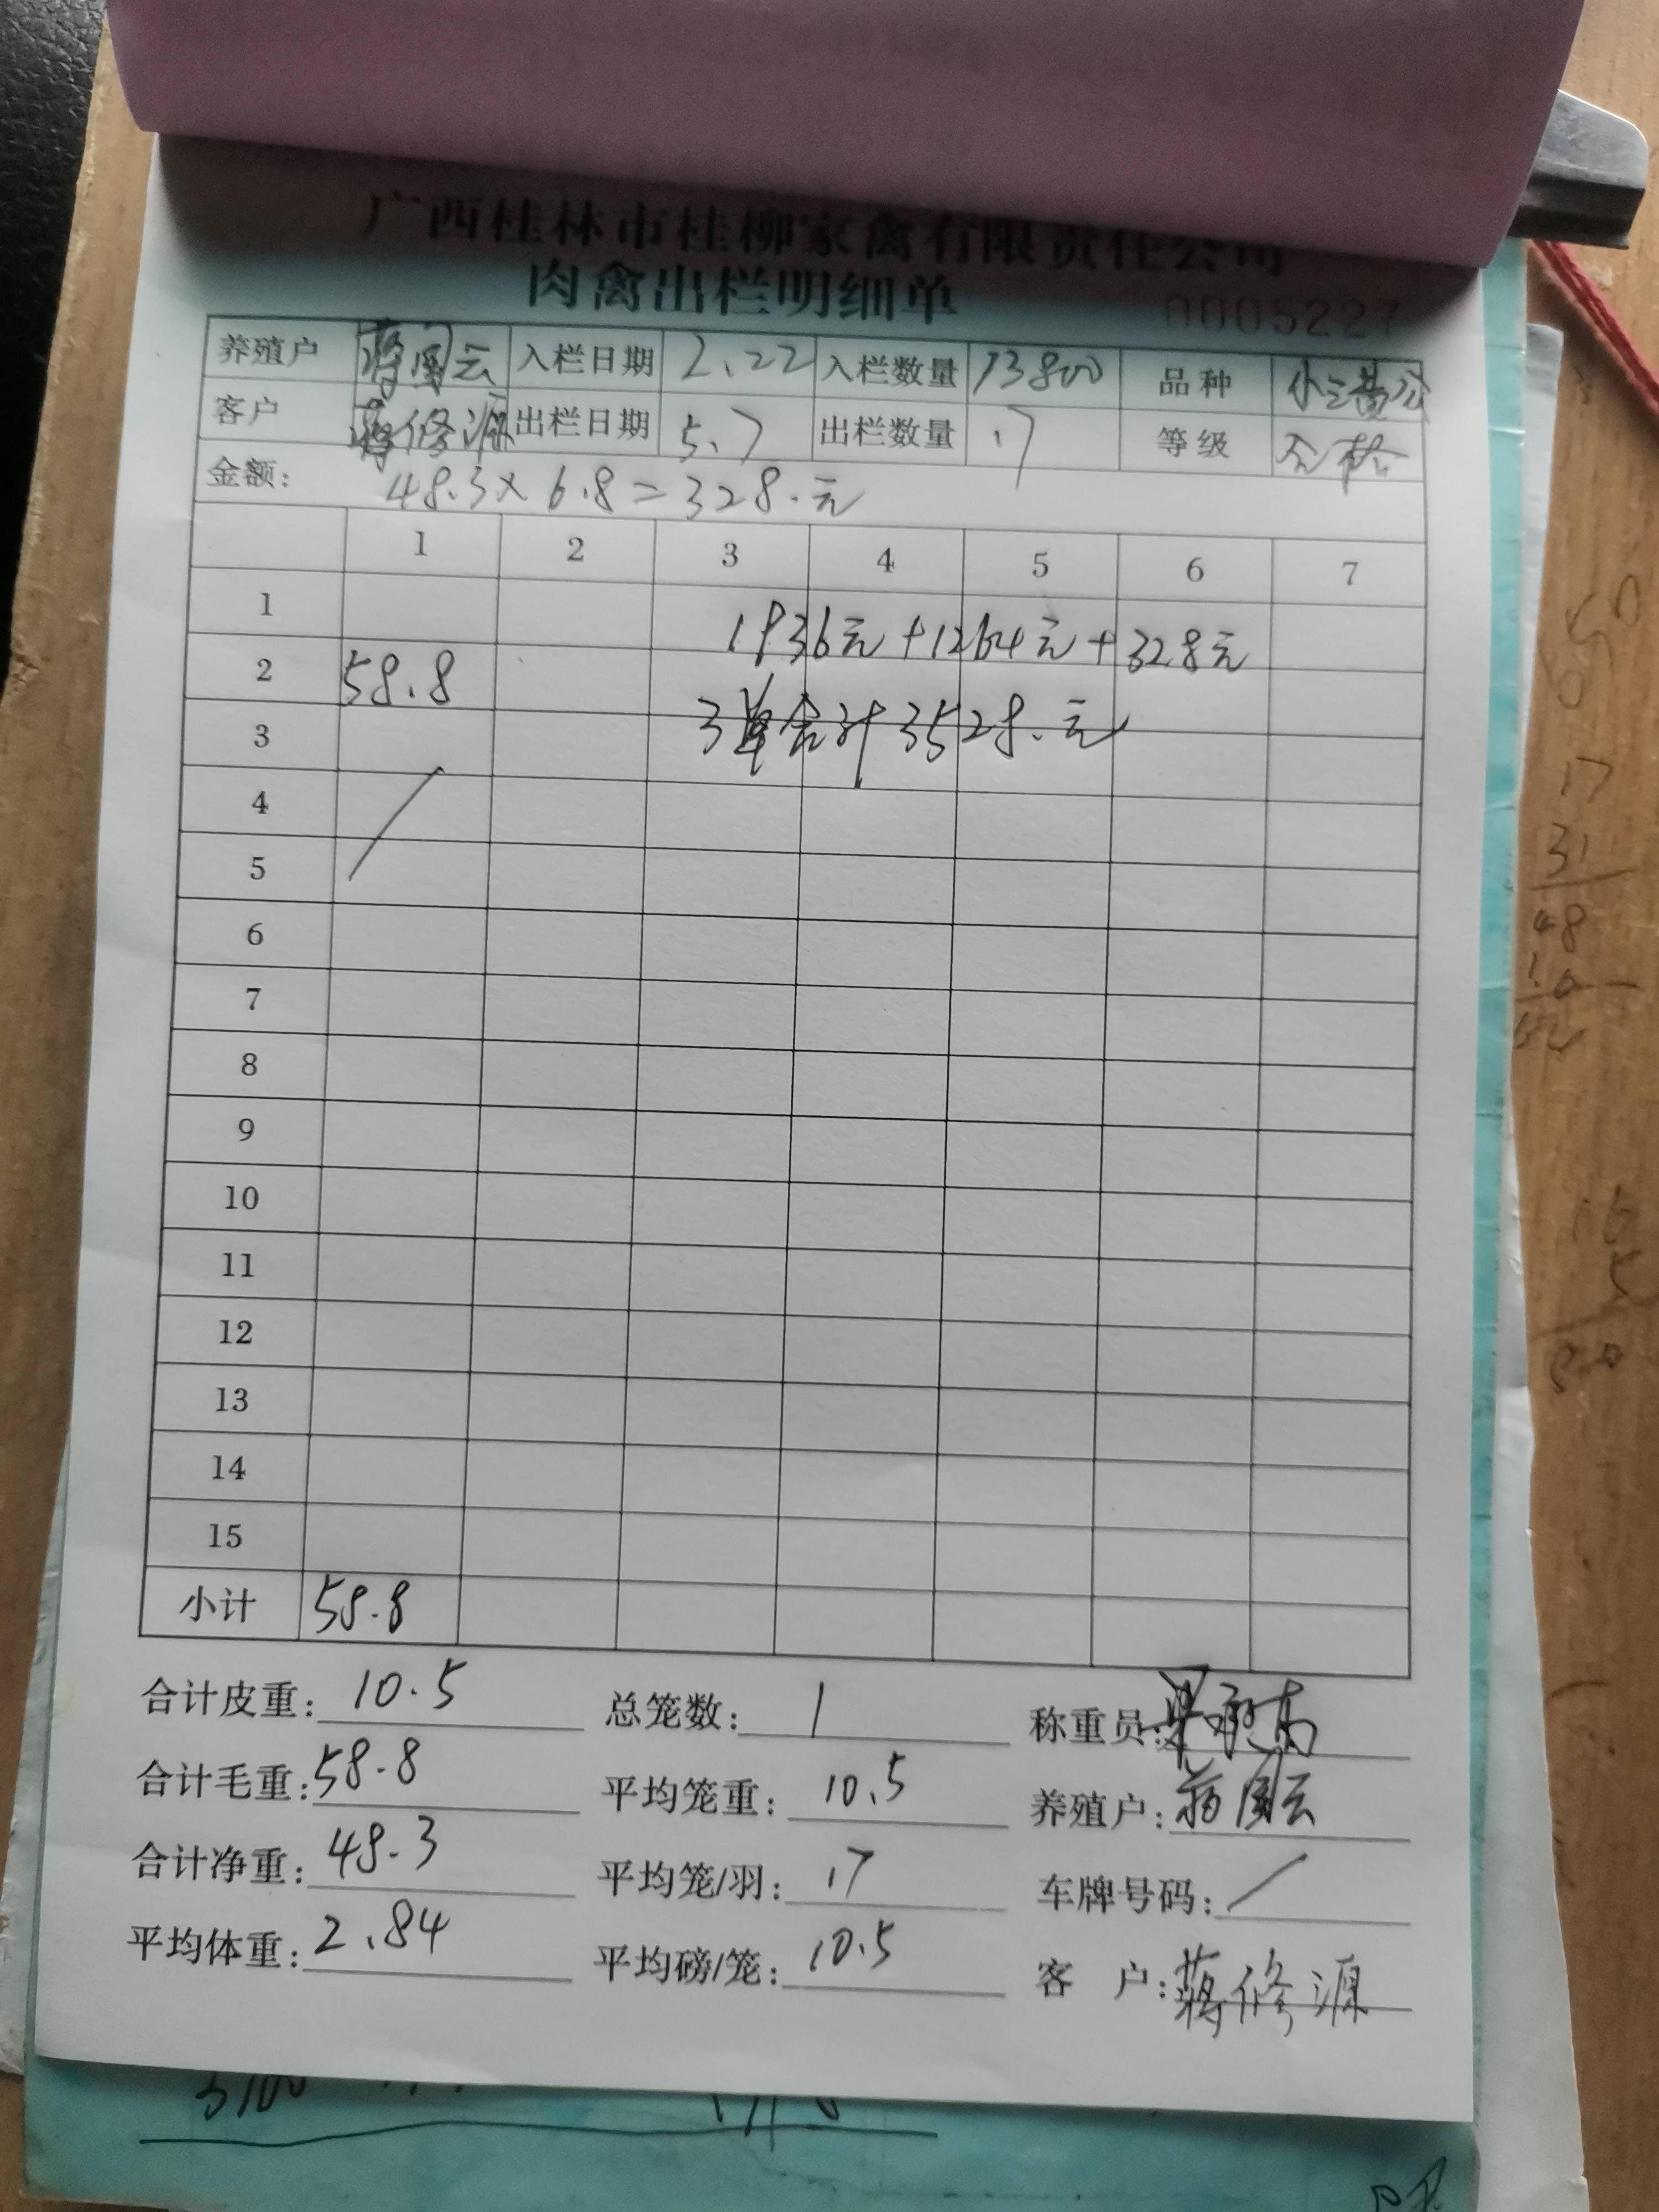 广西桂林市桂柳家禽有限责任公司
肉禽出栏明细单 0005227
养殖户 蒋国云 入栏日期 2.22 入栏数量 13800 品种
客户 蒋修源 出栏日期 5.7 出栏数量 17 等级 合格
金额: 48.3×6.8=328.元
1 2 3 4 5 6 7
1 1936元+1264元+328元
2 58.8
3 3单合计3528.元
4
5
6
7
8
9
10
11
12
13
14
15
小计 58.8
合计皮重: 10.5 总笼数: 1 称重员:
合计毛重: 58.8 平均笼重: 10.5 养殖户: 蒋国云
合计净重: 48.3 平均笼/羽: 17 车牌号码: /
平均体重: 2.84 平均磅/笼: 10.5 客 户: 蒋修源
17
31
48